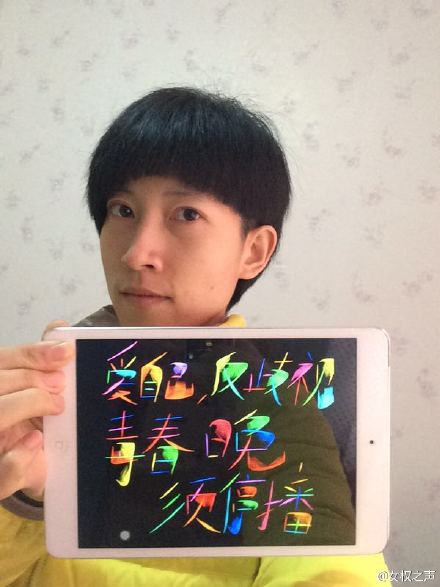 爱自己,反歧视
毒春晚,
须停播
@女权之声